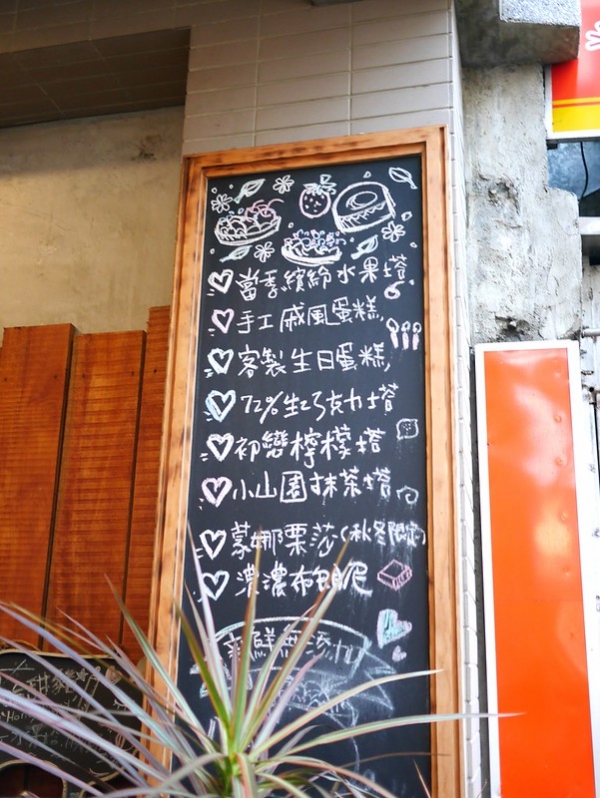 當季繽紛水果塔
手工戚風蛋糕
客製生日蛋糕
72%生巧克力塔
初戀檸檬塔
小山園抹茶塔
蒙娜栗莎(秋冬限定)
濃濃布朗尼
新鮮無添加